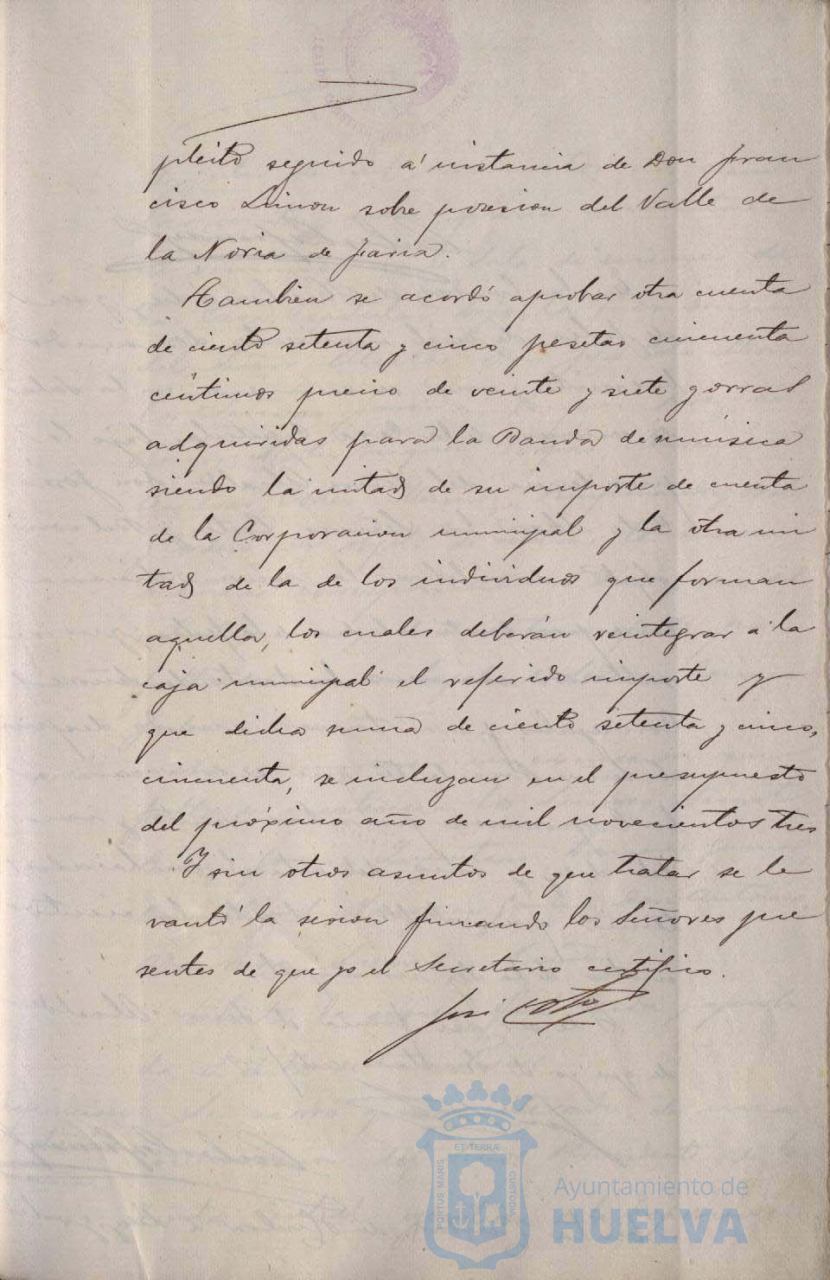 pleito seguido á instancia de Don Fran
cisco Limon sobre posesion del Valle de
la Noria de Faria.
Tambien se acordó aprobar otra cuenta
de ciento setenta y cinco pesetas cincuenta
céntimos precio de veinte y siete gorras
adquiridas para la Banda de música
siendo la mitad de su importe de cuenta
de la Corporacion municipal y la otra mi
tad de la de los individuos que forman
aquella, los cuales deberán reintegrar á la
caja municipal el referido importe y
que dicha suma de ciento setenta y cinco,
cincuenta, se incluyan en el presupuesto
del próximo año de mil novecientos tres
Y sin otros asuntos de que tratar se le
vantó la sesion firmando los Señores pre
sentes de que yo el Secretario certifico.
José
ET TERRÆ
PORTUS MARIS
CUSTODIA
Ayuntamiento de
HUELVA